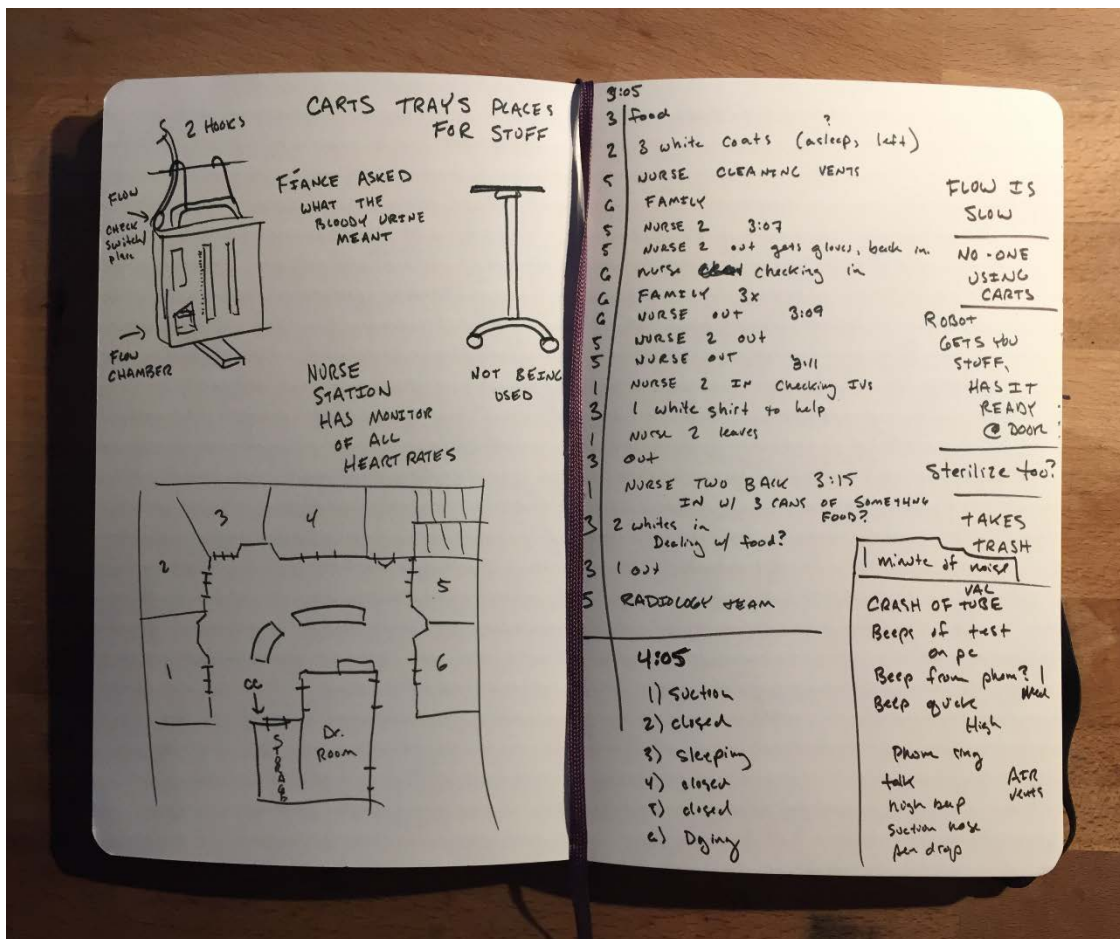 CARTS TRAYS PLACES
FOR STUFF
2 HOOKS
FLOW
CHECK
SWITCH/
FLOW
CHAMBER
FIANCE ASKED
WHAT THE
BLOODY URINE
MEANT
NOT BEING
USED
NURSE
STATION
HAS MONITOR
OF ALL
HEART RATES
3
4
2
5
1
6
8
STORAGE
Dr.
ROOM
3:05
3 food
2 3 white coats (asleep, left)
?
5 NURSE CLEANING VENTS
6 FAMILY
5 NURSE 2 3:07
5 NURSE 2 out gets gloves, back in
6 nurse checking in
6 FAMILY 3x
6 NURSE OUT 3:09
5 NURSE 2 OUT
5 NURSE OUT 3:11
1 NURSE 2 IN Checking IVs
3 1 white shirt to help
1 Nurse 2 leaves
3 out
1 NURSE TWO BACK 3:15
IN W/ 3 CANS OF SOMETHNG
FOOD?
3 2 whites in
Dealing w/ food?
3 1 out
5 RADIOLOGY TEAM
4:05
1) Suction
2) closed
3) Sleeping
4) closed
5) closed
6) Dying
FLOW IS
SLOW
NO-ONE
USING
CARTS
ROBOT
GETS YOU
STUFF,
HAS IT
READY
@ DOOR
Sterilize too?
TAKES
TRASH
1 minute of noise
VAL
CRASH OF TUBE
Beeps of test
on pc
Beep from phon? 1
Beep quick
High
Phone ring
talk
AIR
vents
high beep
suction hose
pen drop